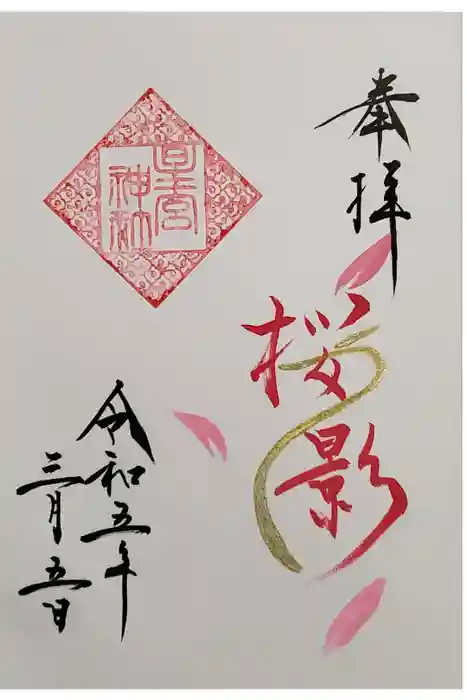 奉拝
桜影
宮
神社
令和五年
三月五日